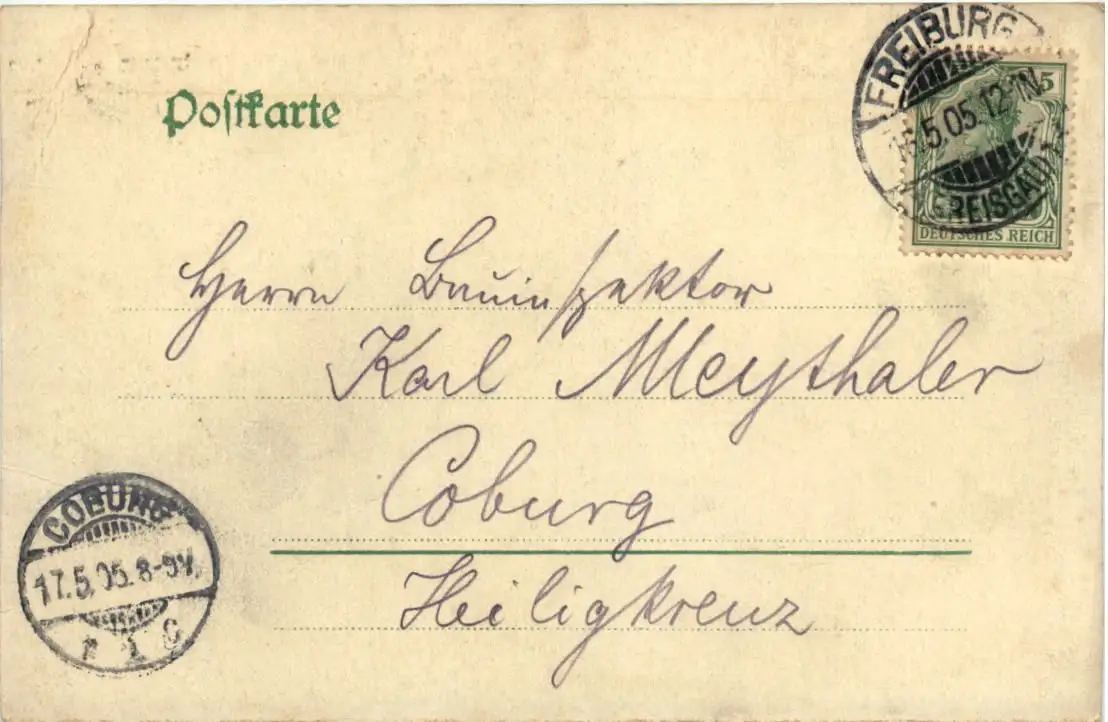 Postkarte
FREIBURG
5
16.5.05.12-1N.
BREISGAU
DEUTSCHES REICH
Herrn Bauinspektor
Karl Meythaler
Coburg
Heiligkreuz
COBURG
17.5.05.8-9V.